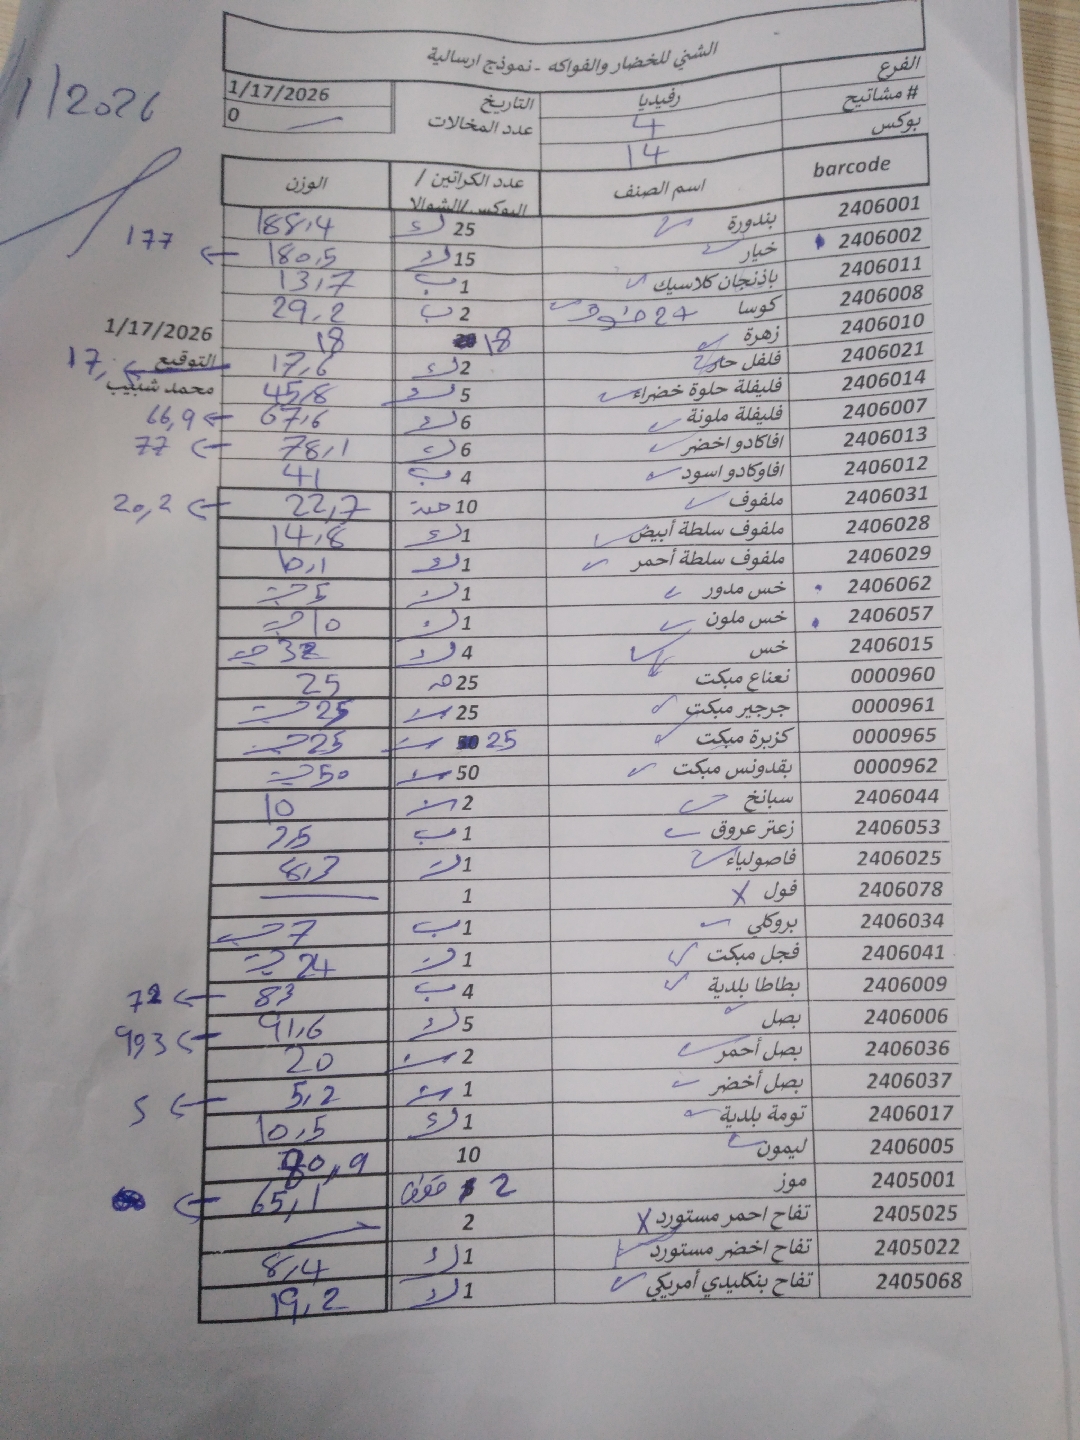 الشني للخضار والفواكه - نموذج ارسالية
الفرع رفيديا التاريخ 1/17/2026
# مشاتيح 4 عدد المخالات 0
بوكس 14
1/2026
barcode اسم الصنف عدد الكراتين / البوكس/الشوالا الوزن
2406001 بندورة 25 188,4
2406002 خيار 15 180,5 177
2406011 باذنجان كلاسيك 1 ب 13,7
2406008 كوسا 2 ب 29,2
2406010 زهرة 18 18
1/17/2026
2406021 فلفل حار 2 17,6 17,
التوقيع
2406014 فليفلة حلوة خضراء 5 45,8
محمد شبيب
2406007 فليفلة ملونة 6 67,6 66,9
2406013 افاكادو اخضر 6 78,1 77
2406012 افاوكادو اسود 4 ب 41
2406031 ملفوف 10 حبة 22,7 20,2
2406028 ملفوف سلطة أبيض 1 14,8
2406029 ملفوف سلطة أحمر 1 10,1
2406062 خس مدور 1 5
2406057 خس ملون 1 10
2406015 خس 4 32
0000960 نعناع مبكت 25 25
0000961 جرجير مبكت 25 25
0000965 كزبرة مبكت 25 25
0000962 بقدونس مبكت 50 50
2406044 سبانخ 2 10
2406053 زعتر عروق 1 ب 2,5
2406025 فاصولياء 1 8,3
2406078 فول 1
2406034 بروكلي 1 ب 7
2406041 فجل مبكت 1 24
2406009 بطاطا بلدية 4 ب 83 72
2406006 بصل 5 91,6 90,3
2406036 بصل أحمر 2 20
2406037 بصل أخضر 1 5,2 5
2406017 تومة بلدية 1 10,5
2406005 ليمون 10
2405001 موز 2 65,1
2405025 تفاح احمر مستورد 2
2405022 تفاح اخضر مستورد 1 8,4
2405068 تفاح بنكليدي أمريكي 1 19,2